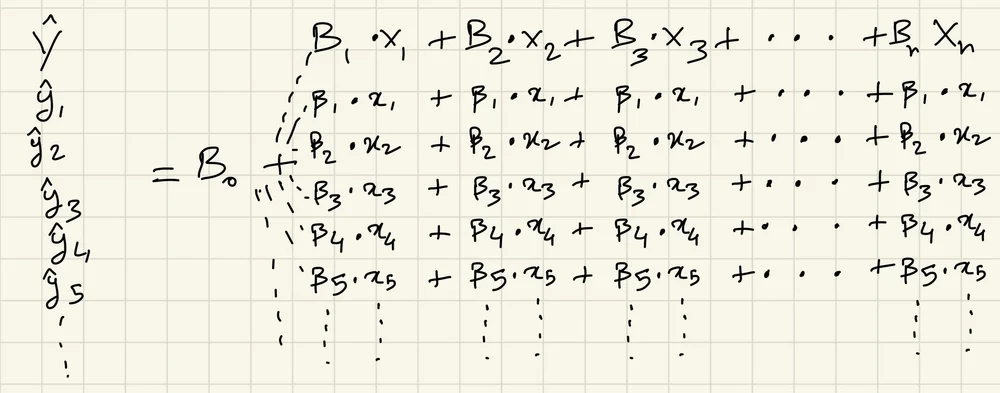 Ŷ B₁ · X₁ + B₂ · X₂ + B₃ · X₃ + · · · · + Bₙ Xₙ
ŷ₁ β₁ · x₁ + β₁ · x₁ + β₁ · x₁ + · · · · + β₁ · x₁
ŷ₂ β₂ · x₂ + β₂ · x₂ + β₂ · x₂ + · · · · + β₂ · x₂
= B₀ +
ŷ₃ β₃ · x₃ + β₃ · x₃ + β₃ · x₃ + · · · + β₃ · x₃
ŷ₄ β₄ · x₄ + β₄ · x₄ + β₄ · x₄ + · · · · + β₄ · x₄
ŷ₅ β₅ · x₅ + β₅ · x₅ + β₅ · x₅ + · · · · + β₅ · x₅